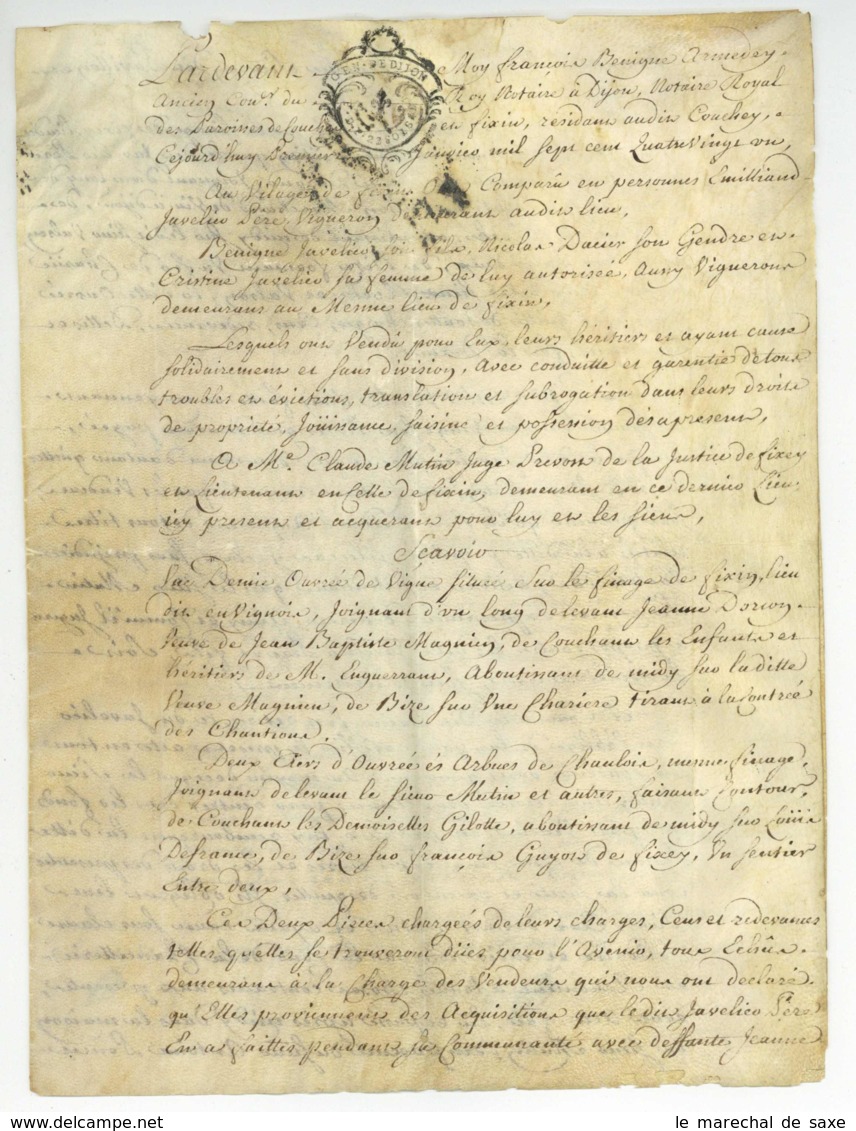 Pardevant Moy françois Benigne Armedey
Ancien Con.er du Roy Notaire à Dijon, Notaire Royal
GEN. DE DIJON
des Paroisses de Couchey en fixin, residant audit Couchey,
Cejourd'huy Premier Janvier mil sept cent Quatrevingt un,
Au Vilage de fixin Ont Comparu en personnes Emilliand
Javelier Pére Vigneron demeurant audit lieu,
Benigne Javelier son fils, Nicolas Dacier son Gendre et
Cristine Javelier sa femme de luy autorisée, Aussy Vignerons
demeurans au Mesme lieu de fixin,
Lesquels ont Vendu pour Eux, leurs héritiers et ayant cause
solidairement et sans division, avec conduitte et garentie de tous
troubles et évictions, translation et subrogation dans leurs droits
de propriété, Joüissance, saisine et possession dèsapresent,
A M.e Claude Mutin Juge Prevost de la Justice de fixey
et Lieutenant en Celle de fixin, demeurant en ce dernier Lieu
icy present et acquerant pour luy et les siens,
Scavoir
Une Demie Ouvrée de Vigne situeé Sur le finage de fixin, lieu
dit en Vignois, Joignant d'un long delevant Jeanne Dorson
Veuve de Jean Baptiste Magnien, de Couchant les Enfants et
héritiers de M. Enguerrant, Aboutissant de midy sur laditte
Veuve Magnien, de Bize sur Une Chariere tirant à la Contrée
des Chantions.
Deux tiers d'Ouvrée és Arbues de Chaulois, mesme finage,
Joignant delevant le sieur Mutin et autres, faisant Contour,
de Couchant les Demoiselles Gilotte, aboutissant de midy sur Loüis
Defrance, de Bize sur françois Guyot de fixey, Un sentier
Entre deux,
Ces Deux Pieces chargeés de leurs charges, Cens et redevances
telles qu'elles se trouveront düies pour l'Avenir, tous Echûs
demeurans à la Charge des Vendeurs qui nous ont declaré
qu'Elles proviennent des Acquisitions que ledit Javelier Pére
En a faittes pendant sa Communauté avec deffunte Jeanne
le marechal de saxe